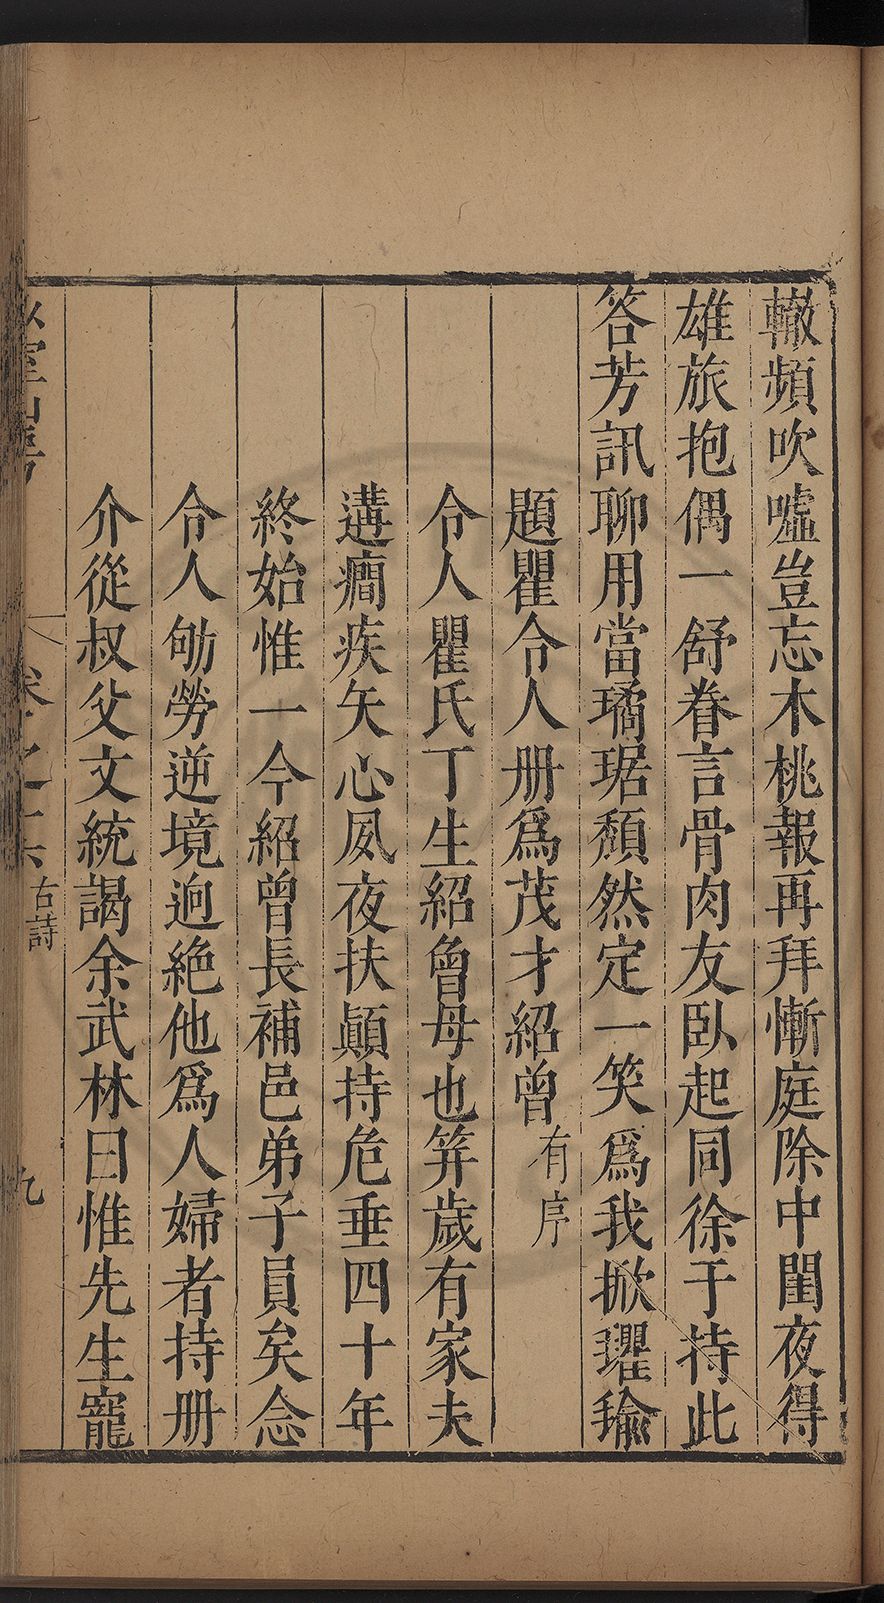 轍頻吹噓豈忘木桃報再拜慚庭除中閨夜得
雄旅抱偶一舒眷言骨肉友臥起同徐于持此
答芳訊聊用當璚琚頽然定一笑爲我掀瓘瑜
題瞿令人册爲茂才紹曾有序
令人瞿氏丁生紹曾母也笄歲有家夫
遘癎疾矢心夙夜扶顚持危垂四十年
終始惟一今紹曾長補邑弟子員矣念
令人劬勞逆境逈絶他爲人婦者持册
介從叔父文統謁余武林曰惟先生寵
古詩
九